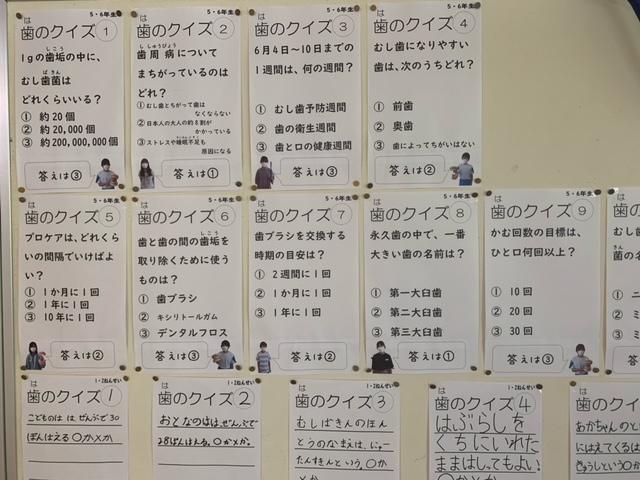 5・6年生
は
歯のクイズ①
しこう
1gの歯垢の中に、
ばきん
むし歯菌は
どれくらいいる?
① 約20個
② 約20,000個
③ 約200,000,000個
答えは③
5・6年生
は
歯のクイズ②
ししゅうびょう
歯周病について
まちがっているのは
どれ?
①むし歯とちがって歯は
なくならない
②日本人の大人の約8割が
かかっている
③ストレスや睡眠不足も
原因になる
答えは①
5・6年生
は
歯のクイズ③
6月4日~10日までの
1週間は、何の週間?
① むし歯予防週間
② 歯の衛生週間
③ 歯と口の健康週間
答えは③
5・6年生
は
歯のクイズ④
むし歯になりやすい
歯は、次のうちどれ?
① 前歯
② 奥歯
③ 歯によってちがいはない
答えは②
5・6年生
は
歯のクイズ⑤
プロケアは、どれくら
いの間隔でいけばよ
い?
① 1か月に1回
② 1年に1回
③ 10年に1回
答えは②
5・6年生
は
歯のクイズ⑥
しこう
歯と歯の間の歯垢を
取り除くために使う
ものは?
① 歯ブラシ
② キシリトールガム
③ デンタルフロス
答えは③
5・6年生
は
歯のクイズ⑦
歯ブラシを交換する
時期の目安は?
① 2週間に1回
② 1か月に1回
③ 1年に1回
答えは②
5・6年生
は
歯のクイズ⑧
永久歯の中で、一番
大きい歯の名前は?
① 第一大臼歯
② 第二大臼歯
③ 第三大臼歯
答えは①
5・6年生
は
歯のクイズ⑨
かむ回数の目標は、
ひと口何回以上?
① 10回
② 20回
③ 30回
答えは③
は
歯の
むし
菌の名
①
②
③
1・2ねんせい
は
歯のクイズ①
こどものは は ぜんぶで30
ぽんはえる 〇か×か
1・2ねんせい
は
歯のクイズ②
おとなのはは、ぜんぶで
28ぽんはえる。〇か×か。
1・2ねんせい
は
歯のクイズ③
むしばきんのほん
とうのなまえは、にゅー
たんすきんという。〇か
×か
1・2ねんせい
は
歯のクイズ④
はぶらしを
くちにいれた
ままはしってもよい
〇か×か
は
歯のクイ
あかちゃんのと
にはえてくるは
きゅうしという〇か